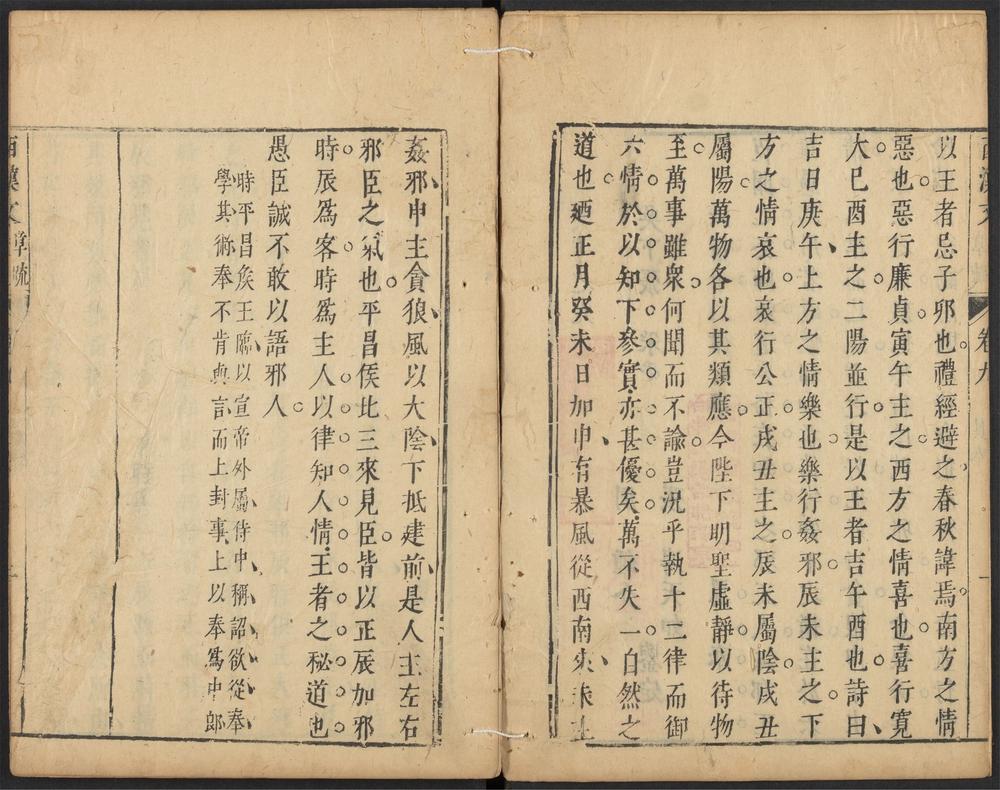 西漢文
卷九
一
以王者忌子卯也禮經避之春秋諱焉南方之情
惡也惡行廉貞寅午主之西方之情喜也喜行寬
大巳酉主之二陽並行是以王者吉午酉也詩曰
吉日庚午上方之情樂也樂行姦邪辰未主之下
方之情哀也哀行公正戌丑主之辰未屬陰戌丑
屬陽萬物各以其類應今陛下明聖虛靜以待物
至萬事雖衆何聞而不諭豈況乎執十二律而御
六情於以知下參實亦甚優矣萬不失一自然之
道也廼正月癸未日加申有暴風從西南來未主
姦邪申主貪狼風以大陰下抵建前是人主左右
邪臣之氣也平昌侯比三來見臣皆以正辰加邪
時辰爲客時爲主人以律知人情王者之秘道也
愚臣誠不敢以語邪人
時平昌侯王臨以宣帝外屬侍中稱詔欲從奉
學其術奉不肯與言而上封事上以奉爲中郎
西漢文